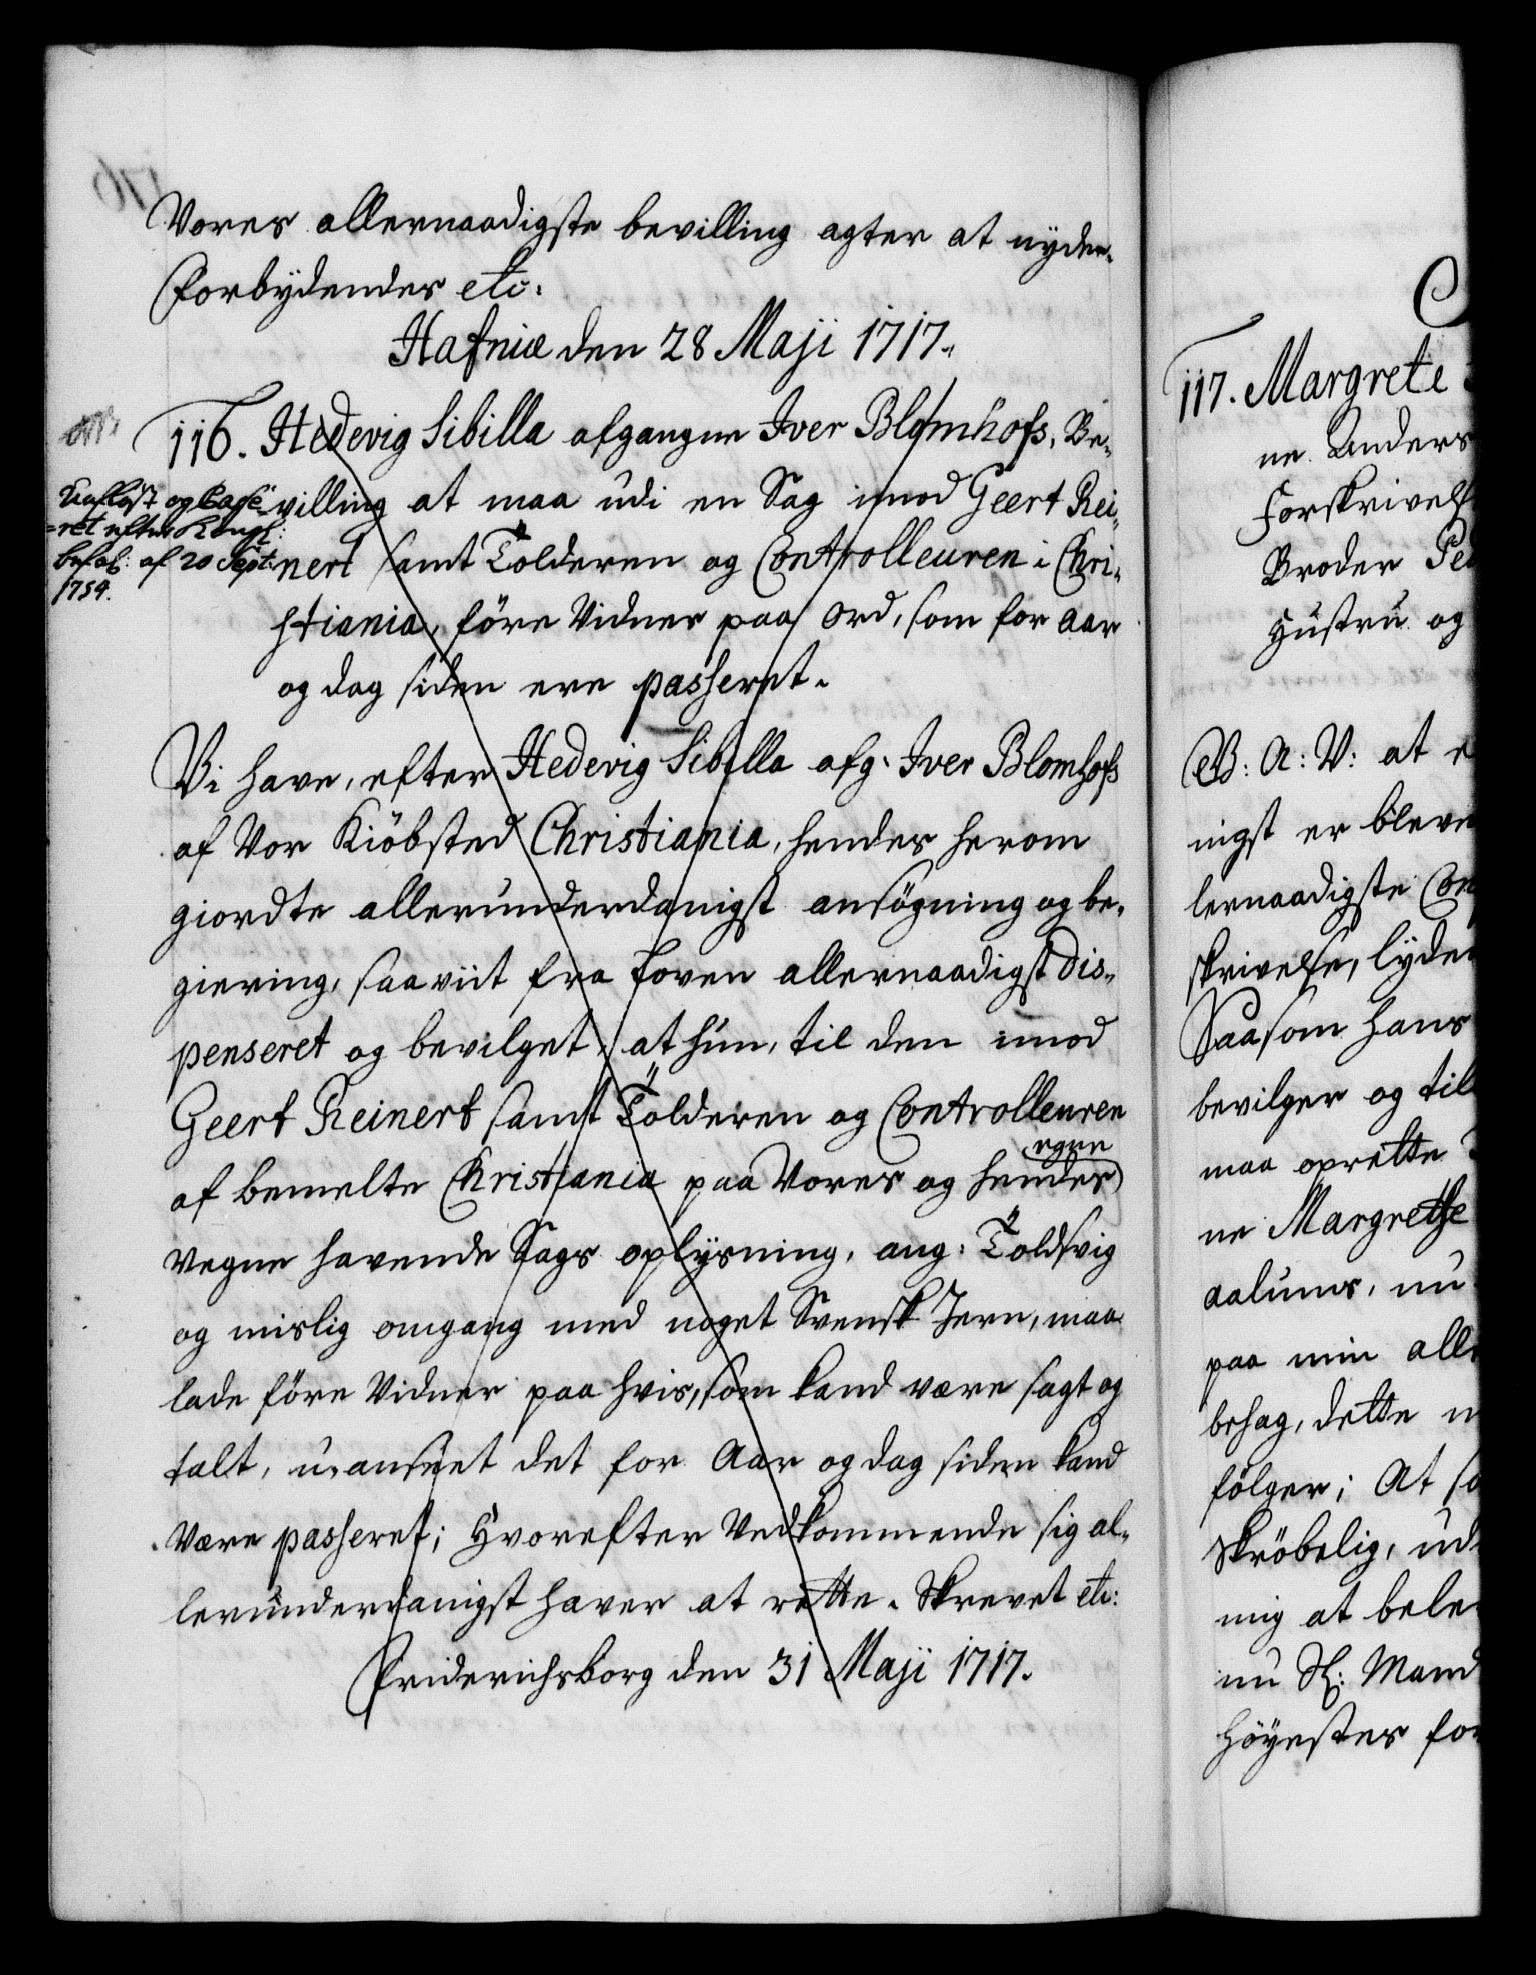 Vores allernaadigste bevilling agter at nyde.
Forbydendes etc:
Hafniæ den 28 Maji 1717.
116. Hedevig Sibilla afgangne Iver Blomhofs, Be-
villing at maa udi en Sag imod Geert Rei-
nert samt Tolderen og Controlleuren i Chri-
stiania, före Vidner paa Ord, som for Aar
og dag siden ere passeret.
Uafløst og Casse-
=ret efter Kongl:
befal: af 20 Sept:
1754.
Vi have, efter Hedevig Sibilla afg. Iver Blomhofs
af Vor Kiöbsted Christiania, hendes herom
giordte allerunderdanigst ansögning og be-
giering, saaviit fra Loven allernaadigst dis-
penseret og bevilget, at hun, til den imod
Geert Reinert samt Tolderen og Controlleuren
af bemelte Christiania paa Vores og hendes
egne
Vegne havende Sags oplysning, ang: Toldsvig
og mislig omgang med noget Svensk Jern, maa
lade före Vidner paa hvis, som kand være sagt og
talt, u-anseet det for Aar og dag siden kand
Være passeret; Hvorefter Vedkommende sig al-
lerunderdanigst haver at rette. Skrevet etc:
Friderichsborg den 31 Maji 1717.
117. Margrete
ne Anders
Forskrivels
Broder Ped
Hustru og
C
G: A: V: at e
nigst er bleve
lernaadigste Con
skrivelse, lyde
Saasom hans
bevilger og til
maa oprette
ne Margrethe
aalums, nu
paa min alle
behag, dette
fölger; At sa
skröbelig, ud
mig at bele
nu Sl: Mand
höyestes for